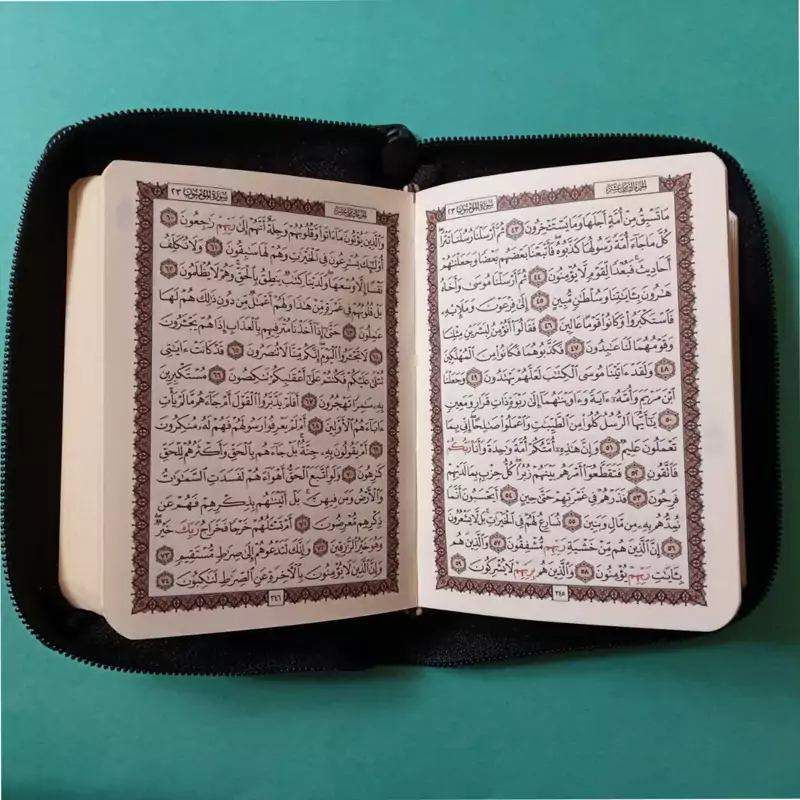 الجزء الثامن عشر
سورة المؤمنون ٢٣
مَا تَسْبِقُ مِنْ أُمَّةٍ أَجَلَهَا وَمَا يَسْتَـْٔخِرُونَ ٤٣ ثُمَّ أَرْسَلْنَا رُسُلَنَا تَتْرَا
كُلَّ مَا جَآءَ أُمَّةً رَّسُولُهَا كَذَّبُوهُ فَأَتْبَعْنَا بَعْضَهُم بَعْضًا وَجَعَلْنَٰهُمْ
أَحَادِيثَ فَبُعْدًا لِّقَوْمٍ لَّا يُؤْمِنُونَ ٤٤ ثُمَّ أَرْسَلْنَا مُوسَىٰ وَأَخَاهُ
هَٰرُونَ بِـَٔايَٰتِنَا وَسُلْطَٰنٍ مُّبِينٍ ٤٥ إِلَىٰ فِرْعَوْنَ وَمَلَإِي۟هِۦ
فَٱسْتَكْبَرُوا۟ وَكَانُوا۟ قَوْمًا عَالِينَ ٤٦ فَقَالُوٓا۟ أَنُؤْمِنُ لِبَشَرَيْنِ مِثْلِنَا
وَقَوْمُهُمَا لَنَا عَٰبِدُونَ ٤٧ فَكَذَّبُوهُمَا فَكَانُوا۟ مِنَ ٱلْمُهْلَكِينَ
٤٨ وَلَقَدْ ءَاتَيْنَا مُوسَى ٱلْكِتَٰبَ لَعَلَّهُمْ يَهْتَدُونَ ٤٩ وَجَعَلْنَا
ٱبْنَ مَرْيَمَ وَأُمَّهُۥٓ ءَايَةً وَءَاوَيْنَٰهُمَآ إِلَىٰ رَبْوَةٍ ذَاتِ قَرَارٍ وَمَعِينٍ
٥٠ يَٰٓأَيُّهَا ٱلرُّسُلُ كُلُوا۟ مِنَ ٱلطَّيِّبَٰتِ وَٱعْمَلُوا۟ صَٰلِحًا إِنِّى بِمَا
تَعْمَلُونَ عَلِيمٌ ٥١ وَإِنَّ هَٰذِهِۦٓ أُمَّتُكُمْ أُمَّةً وَٰحِدَةً وَأَنَا۠ رَبُّكُمْ
فَٱتَّقُونِ ٥٢ فَتَقَطَّعُوٓا۟ أَمْرَهُم بَيْنَهُمْ زُبُرًا كُلُّ حِزْبٍۭ بِمَا لَدَيْهِمْ
فَرِحُونَ ٥٣ فَذَرْهُمْ فِى غَمْرَتِهِمْ حَتَّىٰ حِينٍ ٥٤ أَيَحْسَبُونَ أَنَّمَا
نُمِدُّهُم بِهِۦ مِن مَّالٍ وَبَنِينَ ٥٥ نُسَارِعُ لَهُمْ فِى ٱلْخَيْرَٰتِ بَل لَّا يَشْعُرُونَ
٥٦ إِنَّ ٱلَّذِينَ هُم مِّنْ خَشْيَةِ رَبِّهِم مُّشْفِقُونَ ٥٧ وَٱلَّذِينَ هُم
بِـَٔايَٰتِ رَبِّهِمْ يُؤْمِنُونَ ٥٨ وَٱلَّذِينَ هُم بِرَبِّهِمْ لَا يُشْرِكُونَ ٥٩
٣٤٥
الجزء الثامن عشر
سورة المؤمنون ٢٣
وَٱلَّذِينَ يُؤْتُونَ مَآ ءَاتَوا۟ وَّقُلُوبُهُمْ وَجِلَةٌ أَنَّهُمْ إِلَىٰ رَبِّهِمْ رَٰجِعُونَ ٦٠
أُو۟لَٰٓئِكَ يُسَٰرِعُونَ فِى ٱلْخَيْرَٰتِ وَهُمْ لَهَا سَٰبِقُونَ ٦١ وَلَا نُكَلِّفُ
نَفْسًا إِلَّا وُسْعَهَا وَلَدَيْنَا كِتَٰبٌ يَنطِقُ بِٱلْحَقِّ وَهُمْ لَا يُظْلَمُونَ ٦٢
بَلْ قُلُوبُهُمْ فِى غَمْرَةٍ مِّنْ هَٰذَا وَلَهُمْ أَعْمَٰلٌ مِّن دُونِ ذَٰلِكَ هُمْ لَهَا
عَٰمِلُونَ ٦٣ حَتَّىٰٓ إِذَآ أَخَذْنَا مُتْرَفِيهِم بِٱلْعَذَابِ إِذَا هُمْ يَجْـَٔرُونَ
٦٤ لَا تَجْـَٔرُوا۟ ٱلْيَوْمَ إِنَّكُم مِّنَّا لَا تُنصَرُونَ ٦٥ قَدْ كَانَتْ ءَايَٰتِى
تُتْلَىٰ عَلَيْكُمْ فَكُنتُمْ عَلَىٰٓ أَعْقَٰبِكُمْ تَنكِصُونَ ٦٦ مُسْتَكْبِرِينَ
بِهِۦ سَٰمِرًا تَهْجُرُونَ ٦٧ أَفَلَمْ يَدَّبَّرُوا۟ ٱلْقَوْلَ أَمْ جَآءَهُم مَّا لَمْ يَأْتِ
ءَابَآءَهُمُ ٱلْأَوَّلِينَ ٦٨ أَمْ لَمْ يَعْرِفُوا۟ رَسُولَهُمْ فَهُمْ لَهُۥ مُنكِرُونَ
٦٩ أَمْ يَقُولُونَ بِهِۦ جِنَّةٌۢ بَلْ جَآءَهُم بِٱلْحَقِّ وَأَكْثَرُهُمْ لِلْحَقِّ
كَٰرِهُونَ ٧٠ وَلَوِ ٱتَّبَعَ ٱلْحَقُّ أَهْوَآءَهُمْ لَفَسَدَتِ ٱلسَّمَٰوَٰتُ
وَٱلْأَرْضُ وَمَن فِيهِنَّ بَلْ أَتَيْنَٰهُم بِذِكْرِهِمْ فَهُمْ عَن
ذِكْرِهِم مُّعْرِضُونَ ٧١ أَمْ تَسْـَٔلُهُمْ خَرْجًا فَخَرَاجُ رَبِّكَ خَيْرٌ
وَهُوَ خَيْرُ ٱلرَّٰزِقِينَ ٧٢ وَإِنَّكَ لَتَدْعُوهُمْ إِلَىٰ صِرَٰطٍ مُّسْتَقِيمٍ ٧٣
وَإِنَّ ٱلَّذِينَ لَا يُؤْمِنُونَ بِٱلْءَاخِرَةِ عَنِ ٱلصِّرَٰطِ لَنَٰكِبُونَ ٧٤
٣٤٦